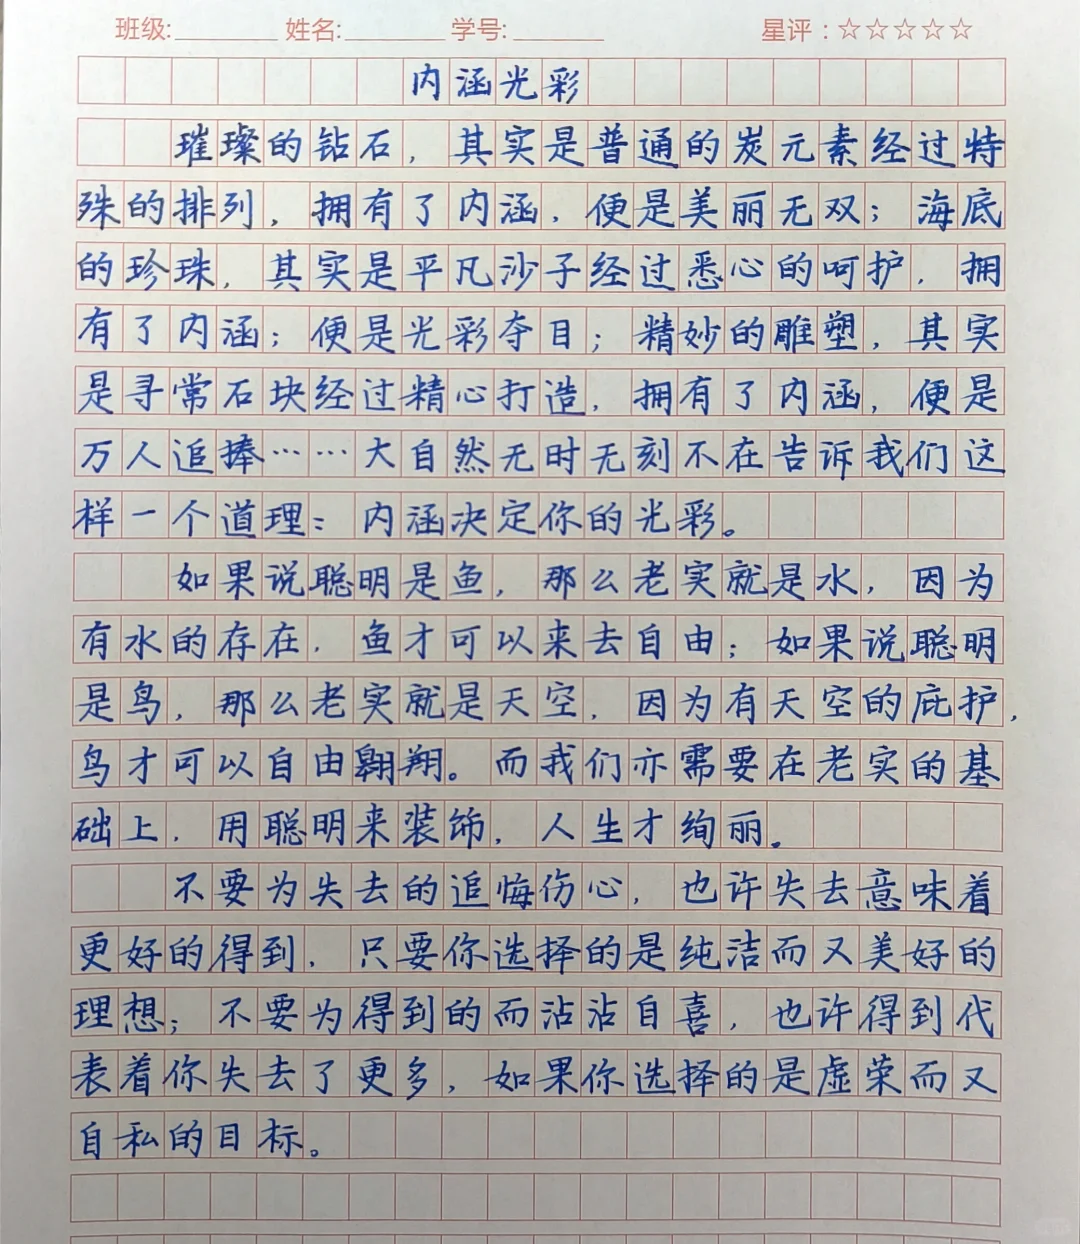 班级:________ 姓名:________ 学号:_______ 星评：☆☆☆☆☆
内涵光彩
璀璨的钻石，其实是普通的炭元素经过特
殊的排列，拥有了内涵，便是美丽无双；海底
的珍珠，其实是平凡沙子经过悉心的呵护，拥
有了内涵；便是光彩夺目；精妙的雕塑，其实
是寻常石块经过精心打造，拥有了内涵，便是
万人追捧……大自然无时无刻不在告诉我们这
样一个道理：内涵决定你的光彩。
如果说聪明是鱼，那么老实就是水，因为
有水的存在，鱼才可以来去自由；如果说聪明
是鸟，那么老实就是天空，因为有天空的庇护，
鸟才可以自由翱翔。而我们亦需要在老实的基
础上，用聪明来装饰，人生才绚丽。
不要为失去的追悔伤心，也许失去意味着
更好的得到，只要你选择的是纯洁而又美好的
理想；不要为得到的而沾沾自喜，也许得到代
表着你失去了更多，如果你选择的是虚荣而又
自私的目标。